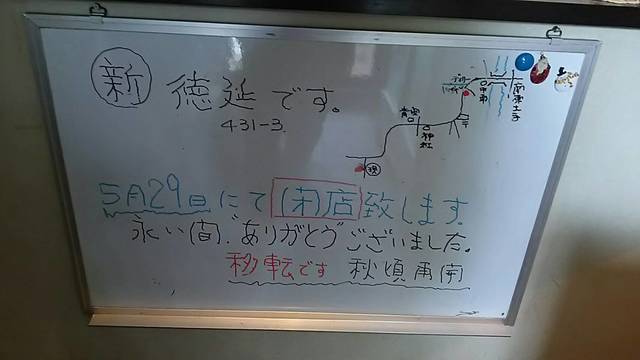 新 徳延です。
431-3.
神社
寺
現
5月29日にて(閉)店致します。
永い間、ありがとうございました。
移転です 秋頃再開